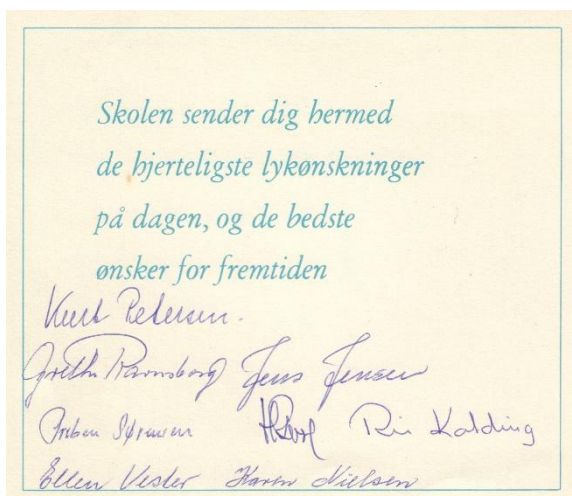 Skolen sender dig hermed
de hjerteligste lykønskninger
på dagen, og de bedste
ønsker for fremtiden
Kurt Petersen.
Grethe Ravnsborg Jens Jensen
Preben Sørensen Kolding
Ellen Vester Karen Nielsen